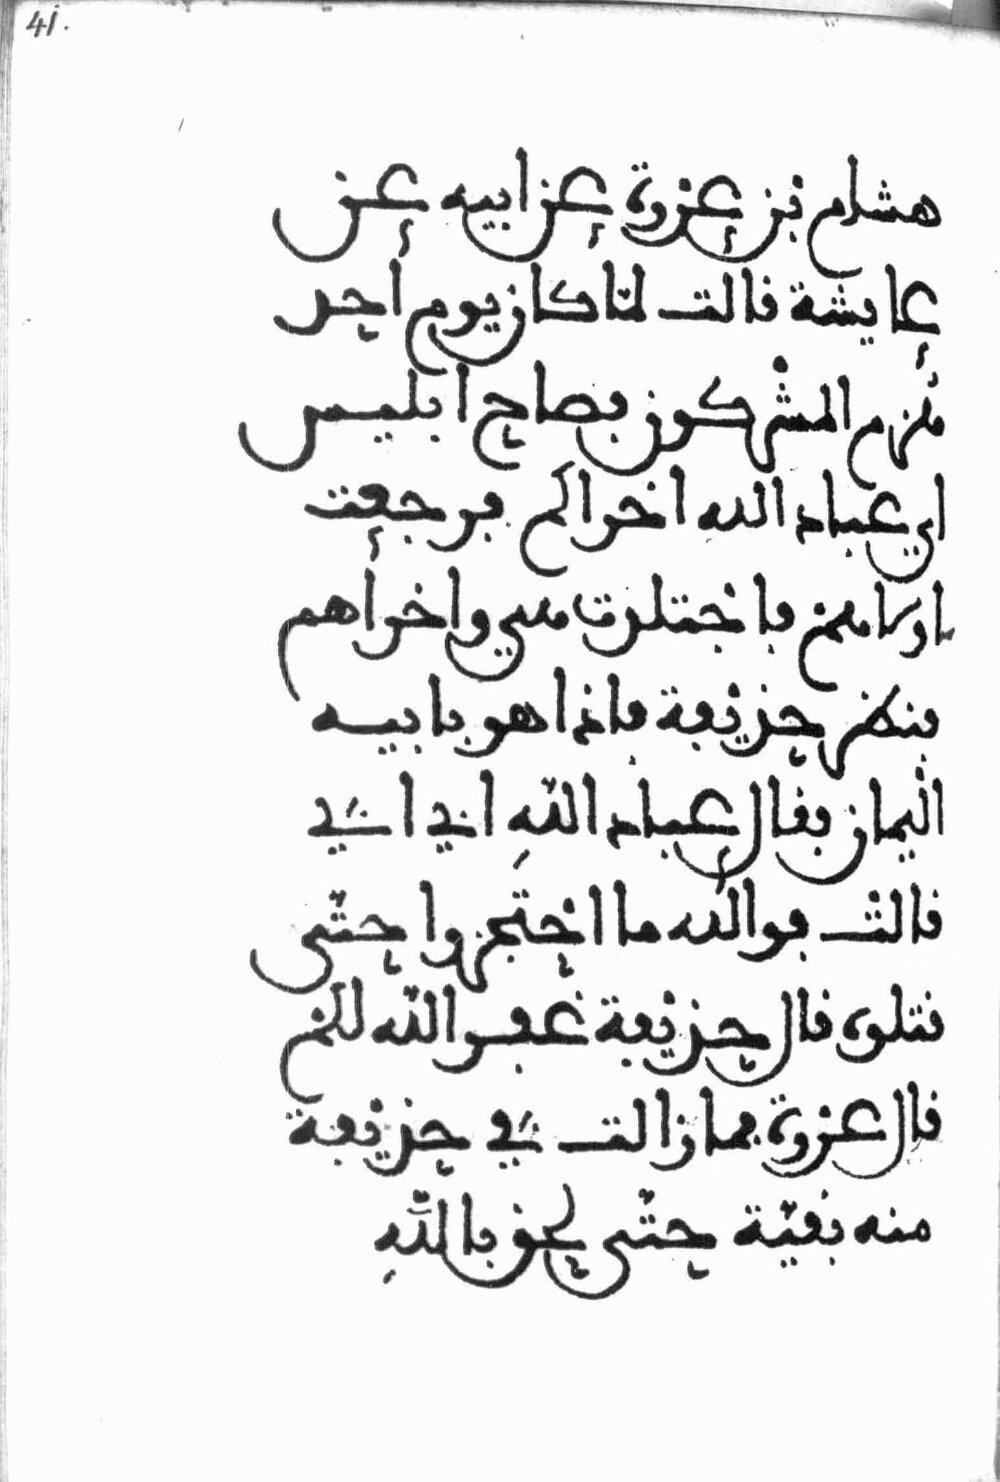 41.
هشام بن عروة عن ابيه عن
عايشة قالت لما كان يوم احد
هزم المشركون فصاح ابليس
اي عباد الله اخراكم فرجعت
اولاهم فاجتلدت هي واخراهم
فنظر حذيفة فاذا هو بابيه
اليمان فقال عباد الله ابي ابي
قالت فوالله ما احتجزوا حتى
قتلوه قال حذيفة غفر الله لكم
قال عروة فما زالت في حذيفة
منه بقية حتى لحق بالله